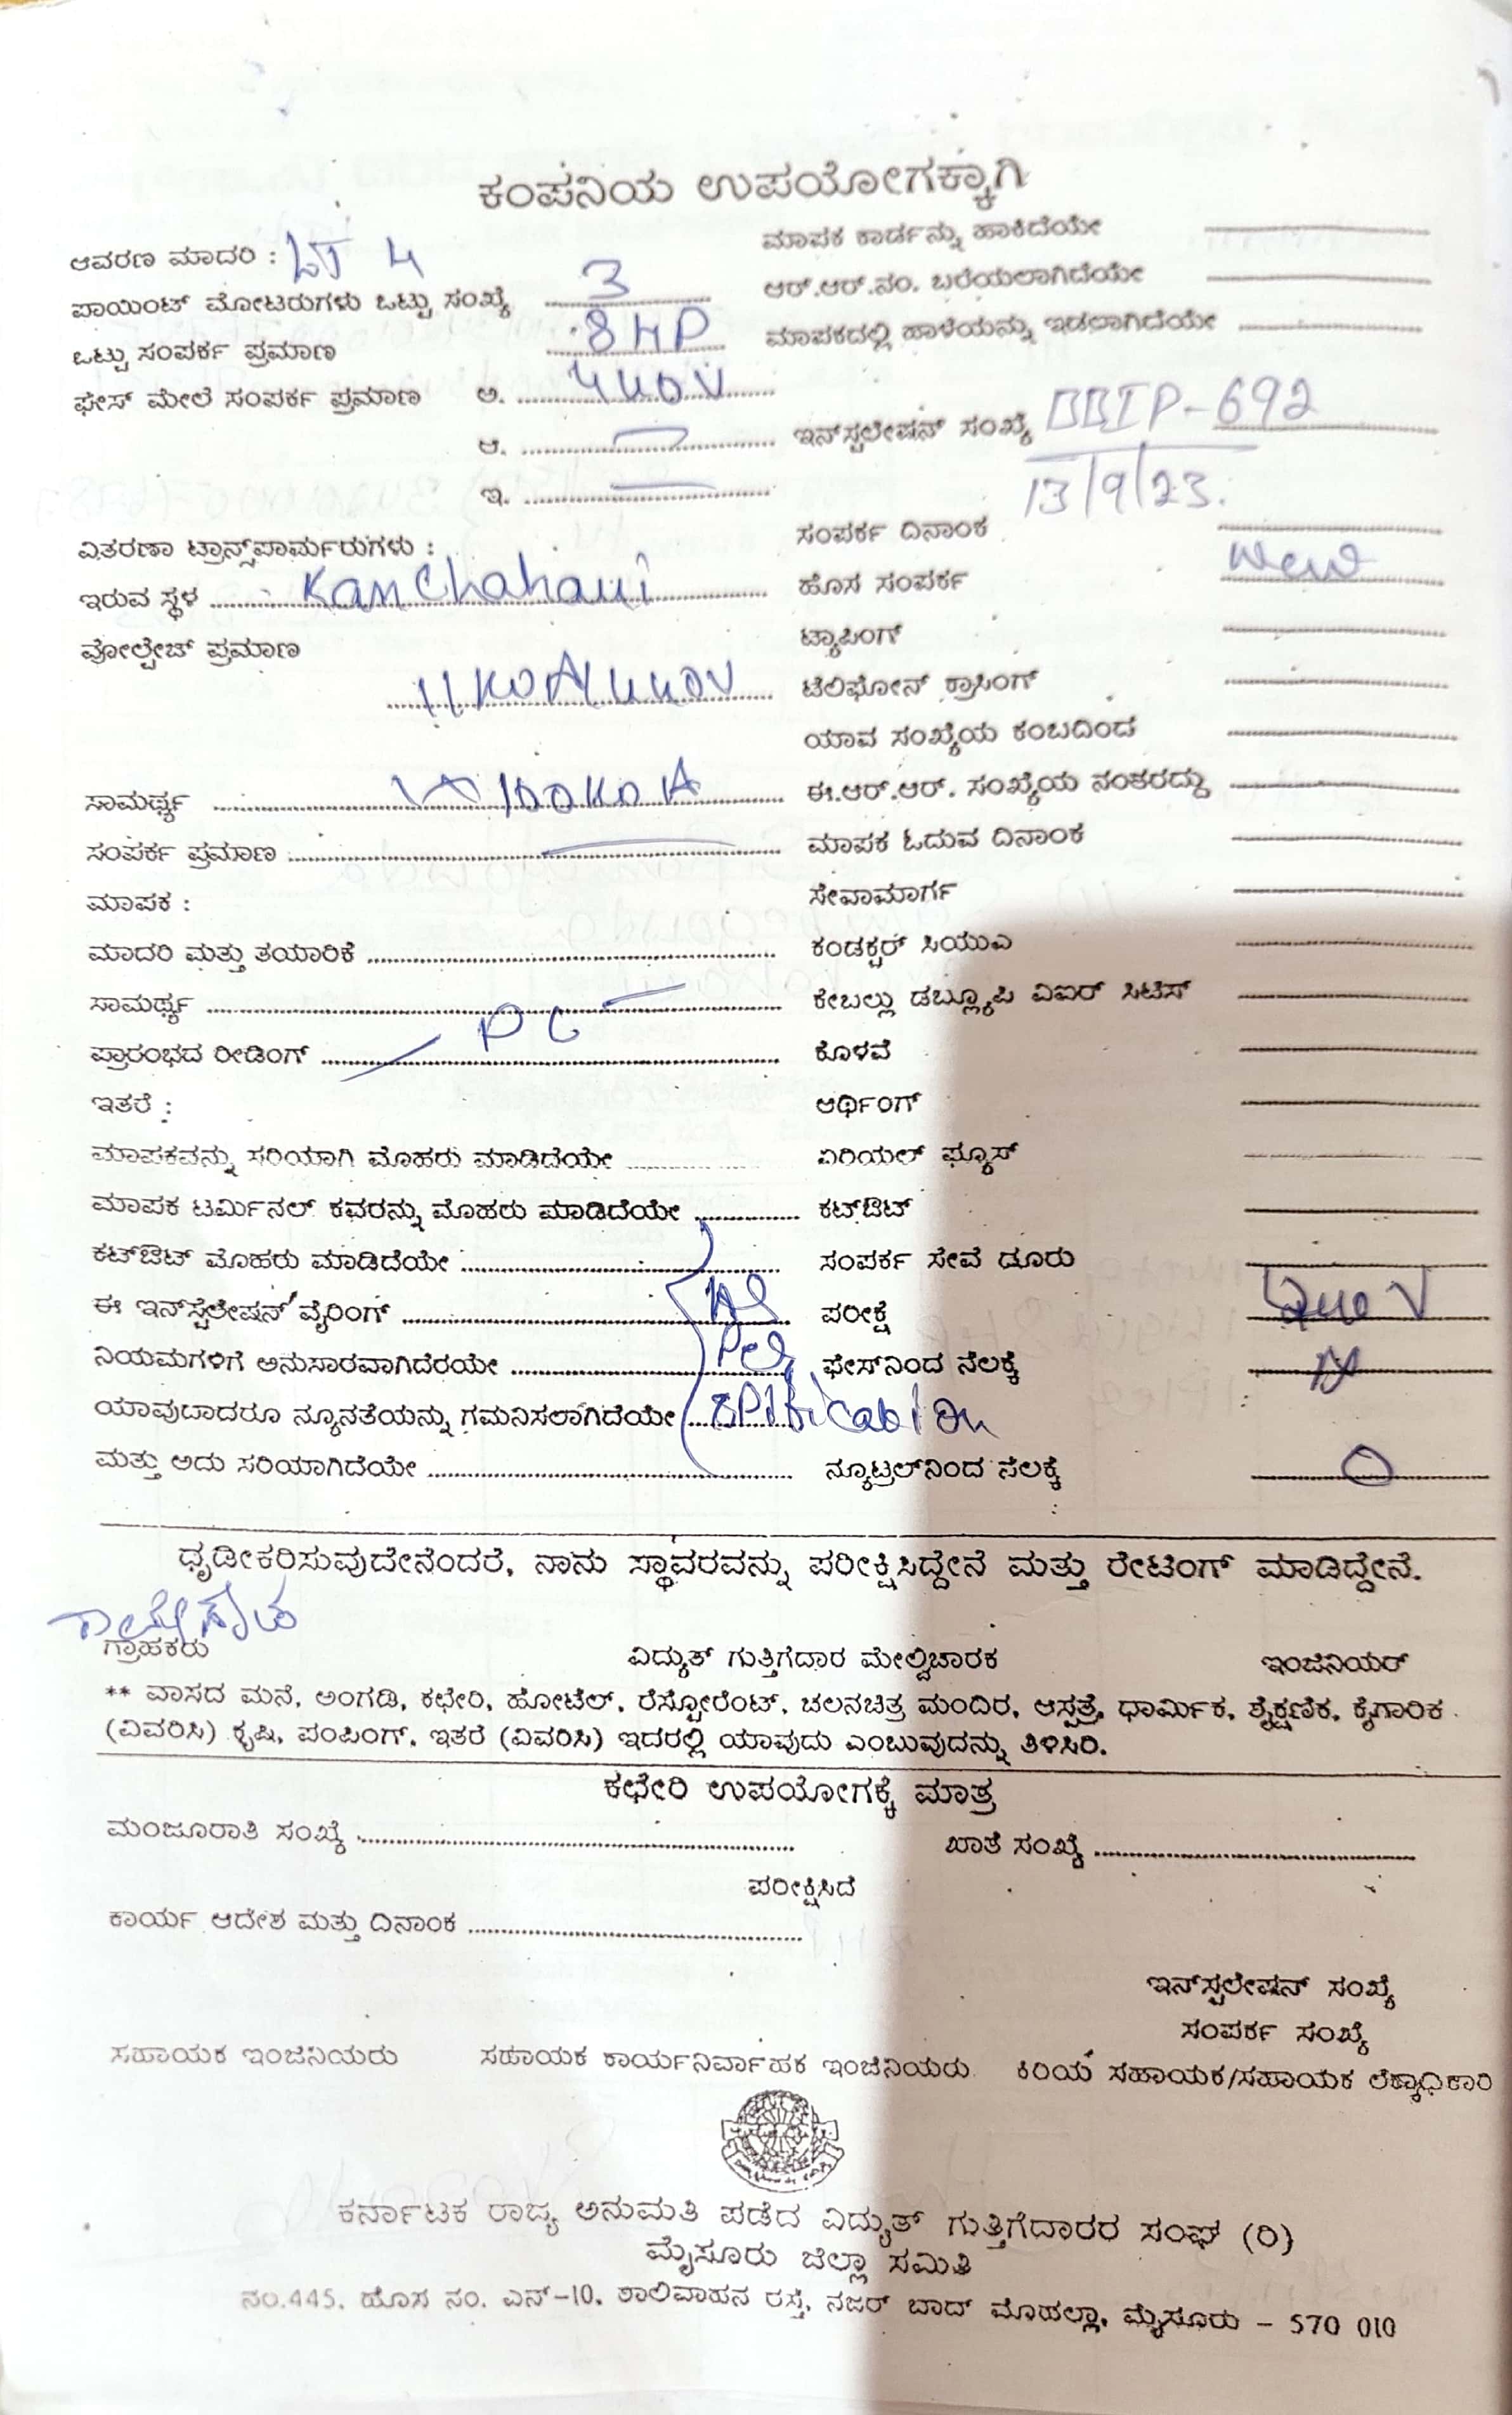 ಕಂಪನಿಯ ಉಪಯೋಗಕ್ಕಾಗಿ
ಆವರಣ ಮಾದರಿ : LT 4
ಮಾಪಕ ಕಾರ್ಡನ್ನು ಹಾಕಿದೆಯೇ
ಪಾಯಿಂಟ್ ಮೋಟರುಗಳು ಒಟ್ಟು ಸಂಖ್ಯೆ 3
ಆರ್.ಆರ್.ನಂ. ಬರೆಯಲಾಗಿದೆಯೇ
ಒಟ್ಟು ಸಂಪರ್ಕ ಪ್ರಮಾಣ 8HP
ಮಾಪಕದಲ್ಲಿ ಹಾಳೆಯನ್ನು ಇಡಲಾಗಿದೆಯೇ
ಫೇಸ್ ಮೇಲೆ ಸಂಪರ್ಕ ಪ್ರಮಾಣ ಅ. 440V
ಆ.
ಇನ್‌ಸ್ಟಲೇಷನ್ ಸಂಖ್ಯೆ BBIP-692
ಇ.
13/9/23.
ಸಂಪರ್ಕ ದಿನಾಂಕ
ವಿತರಣಾ ಟ್ರಾನ್ಸ್‌ಪಾರ್ಮರುಗಳು :
ಇರುವ ಸ್ಥಳ
ಹೊಸ ಸಂಪರ್ಕ New
ವೋಲ್ಟೇಜ್ ಪ್ರಮಾಣ
ಟ್ಯಾಪಿಂಗ್
ಟೆಲಿಫೋನ್ ಕ್ರಾಸಿಂಗ್
ಯಾವ ಸಂಖ್ಯೆಯ ಕಂಬದಿಂದ
ಸಾಮರ್ಥ್ಯ
ಈ.ಆರ್.ಆರ್. ಸಂಖ್ಯೆಯ ನಂತರದ್ದು
ಸಂಪರ್ಕ ಪ್ರಮಾಣ
ಮಾಪಕ ಓದುವ ದಿನಾಂಕ
ಮಾಪಕ :
ಸೇವಾಮಾರ್ಗ
ಮಾದರಿ ಮತ್ತು ತಯಾರಿಕೆ
ಕಂಡಕ್ಟರ್ ಸಿಯುಎ
ಸಾಮರ್ಥ್ಯ
ಕೇಬಲ್ಲು ಡಬ್ಲ್ಯೂಪಿ ವಿಐರ್ ಸಿಟಿಸ್
ಪ್ರಾರಂಭದ ರೀಡಿಂಗ್
ಕೊಳವೆ
ಇತರೆ :
ಆರ್ಥಿಂಗ್
ಮಾಪಕವನ್ನು ಸರಿಯಾಗಿ ಮೊಹರು ಮಾಡಿದೆಯೇ
ಏರಿಯಲ್ ಫ್ಯೂಸ್
ಮಾಪಕ ಟರ್ಮಿನಲ್ ಕವರನ್ನು ಮೊಹರು ಮಾಡಿದೆಯೇ
ಕಟ್‌ಔಟ್
ಕಟ್‌ಔಟ್ ಮೊಹರು ಮಾಡಿದೆಯೇ
ಸಂಪರ್ಕ ಸೇವೆ ಡೂರು
ಈ ಇನ್‌ಸ್ಟೆಲೇಷನ್ ವೈರಿಂಗ್
ಪರೀಕ್ಷೆ
ನಿಯಮಗಳಿಗೆ ಅನುಸಾರವಾಗಿದೆರಯೇ
ಫೇಸ್‌ನಿಂದ ನೆಲಕ್ಕೆ
ಯಾವುದಾದರೂ ನ್ಯೂನತೆಯನ್ನು ಗಮನಿಸಲಾಗಿದೆಯೇ
ಮತ್ತು ಅದು ಸರಿಯಾಗಿದೆಯೇ
ನ್ಯೂಟ್ರಲ್‌ನಿಂದ ನೆಲಕ್ಕೆ 0
ಧೃಡೀಕರಿಸುವುದೇನೆಂದರೆ, ನಾನು ಸ್ಥಾವರವನ್ನು ಪರೀಕ್ಷಿಸಿದ್ದೇನೆ ಮತ್ತು ರೇಟಿಂಗ್ ಮಾಡಿದ್ದೇನೆ.
ಗ್ರಾಹಕರು
ವಿದ್ಯುತ್ ಗುತ್ತಿಗೆದಾರ ಮೇಲ್ವಿಚಾರಕ
ಇಂಜಿನಿಯರ್
** ವಾಸದ ಮನೆ, ಅಂಗಡಿ, ಕಛೇರಿ, ಹೋಟೆಲ್, ರೆಸ್ಟೋರೆಂಟ್, ಚಲನಚಿತ್ರ ಮಂದಿರ, ಆಸ್ಪತ್ರೆ, ಧಾರ್ಮಿಕ, ಶೈಕ್ಷಣಿಕ, ಕೈಗಾರಿಕ
(ವಿವರಿಸಿ) ಕೃಷಿ, ಪಂಪಿಂಗ್, ಇತರೆ (ವಿವರಿಸಿ) ಇದರಲ್ಲಿ ಯಾವುದು ಎಂಬುವುದನ್ನು ತಿಳಿಸಿರಿ.
ಕಛೇರಿ ಉಪಯೋಗಕ್ಕೆ ಮಾತ್ರ
ಮಂಜೂರಾತಿ ಸಂಖ್ಯೆ
ಖಾತೆ ಸಂಖ್ಯೆ
ಪರೀಕ್ಷಿಸಿದೆ
ಕಾರ್ಯ ಆದೇಶ ಮತ್ತು ದಿನಾಂಕ
ಇನ್‌ಸ್ಟಲೇಷನ್ ಸಂಖ್ಯೆ
ಸಂಪರ್ಕ ಸಂಖ್ಯೆ
ಸಹಾಯಕ ಇಂಜಿನಿಯರು
ಸಹಾಯಕ ಕಾರ್ಯನಿರ್ವಾಹಕ ಇಂಜಿನಿಯರು
ಕಿರಿಯ ಸಹಾಯಕ/ಸಹಾಯಕ ಲೆಕ್ಕಾಧಿಕಾರಿ
ಕರ್ನಾಟಕ ರಾಜ್ಯ ಅನುಮತಿ ಪಡೆದ ವಿದ್ಯುತ್ ಗುತ್ತಿಗೆದಾರರ ಸಂಘ (ರಿ)
ಮೈಸೂರು ಜಿಲ್ಲಾ ಸಮಿತಿ
ನಂ.445, ಹೊಸ ನಂ. ಎನ್-10, ಶಾಲಿವಾಹನ ರಸ್ತೆ, ನಜರ್ ಬಾದ್ ಮೊಹಲ್ಲಾ, ಮೈಸೂರು - 570 010